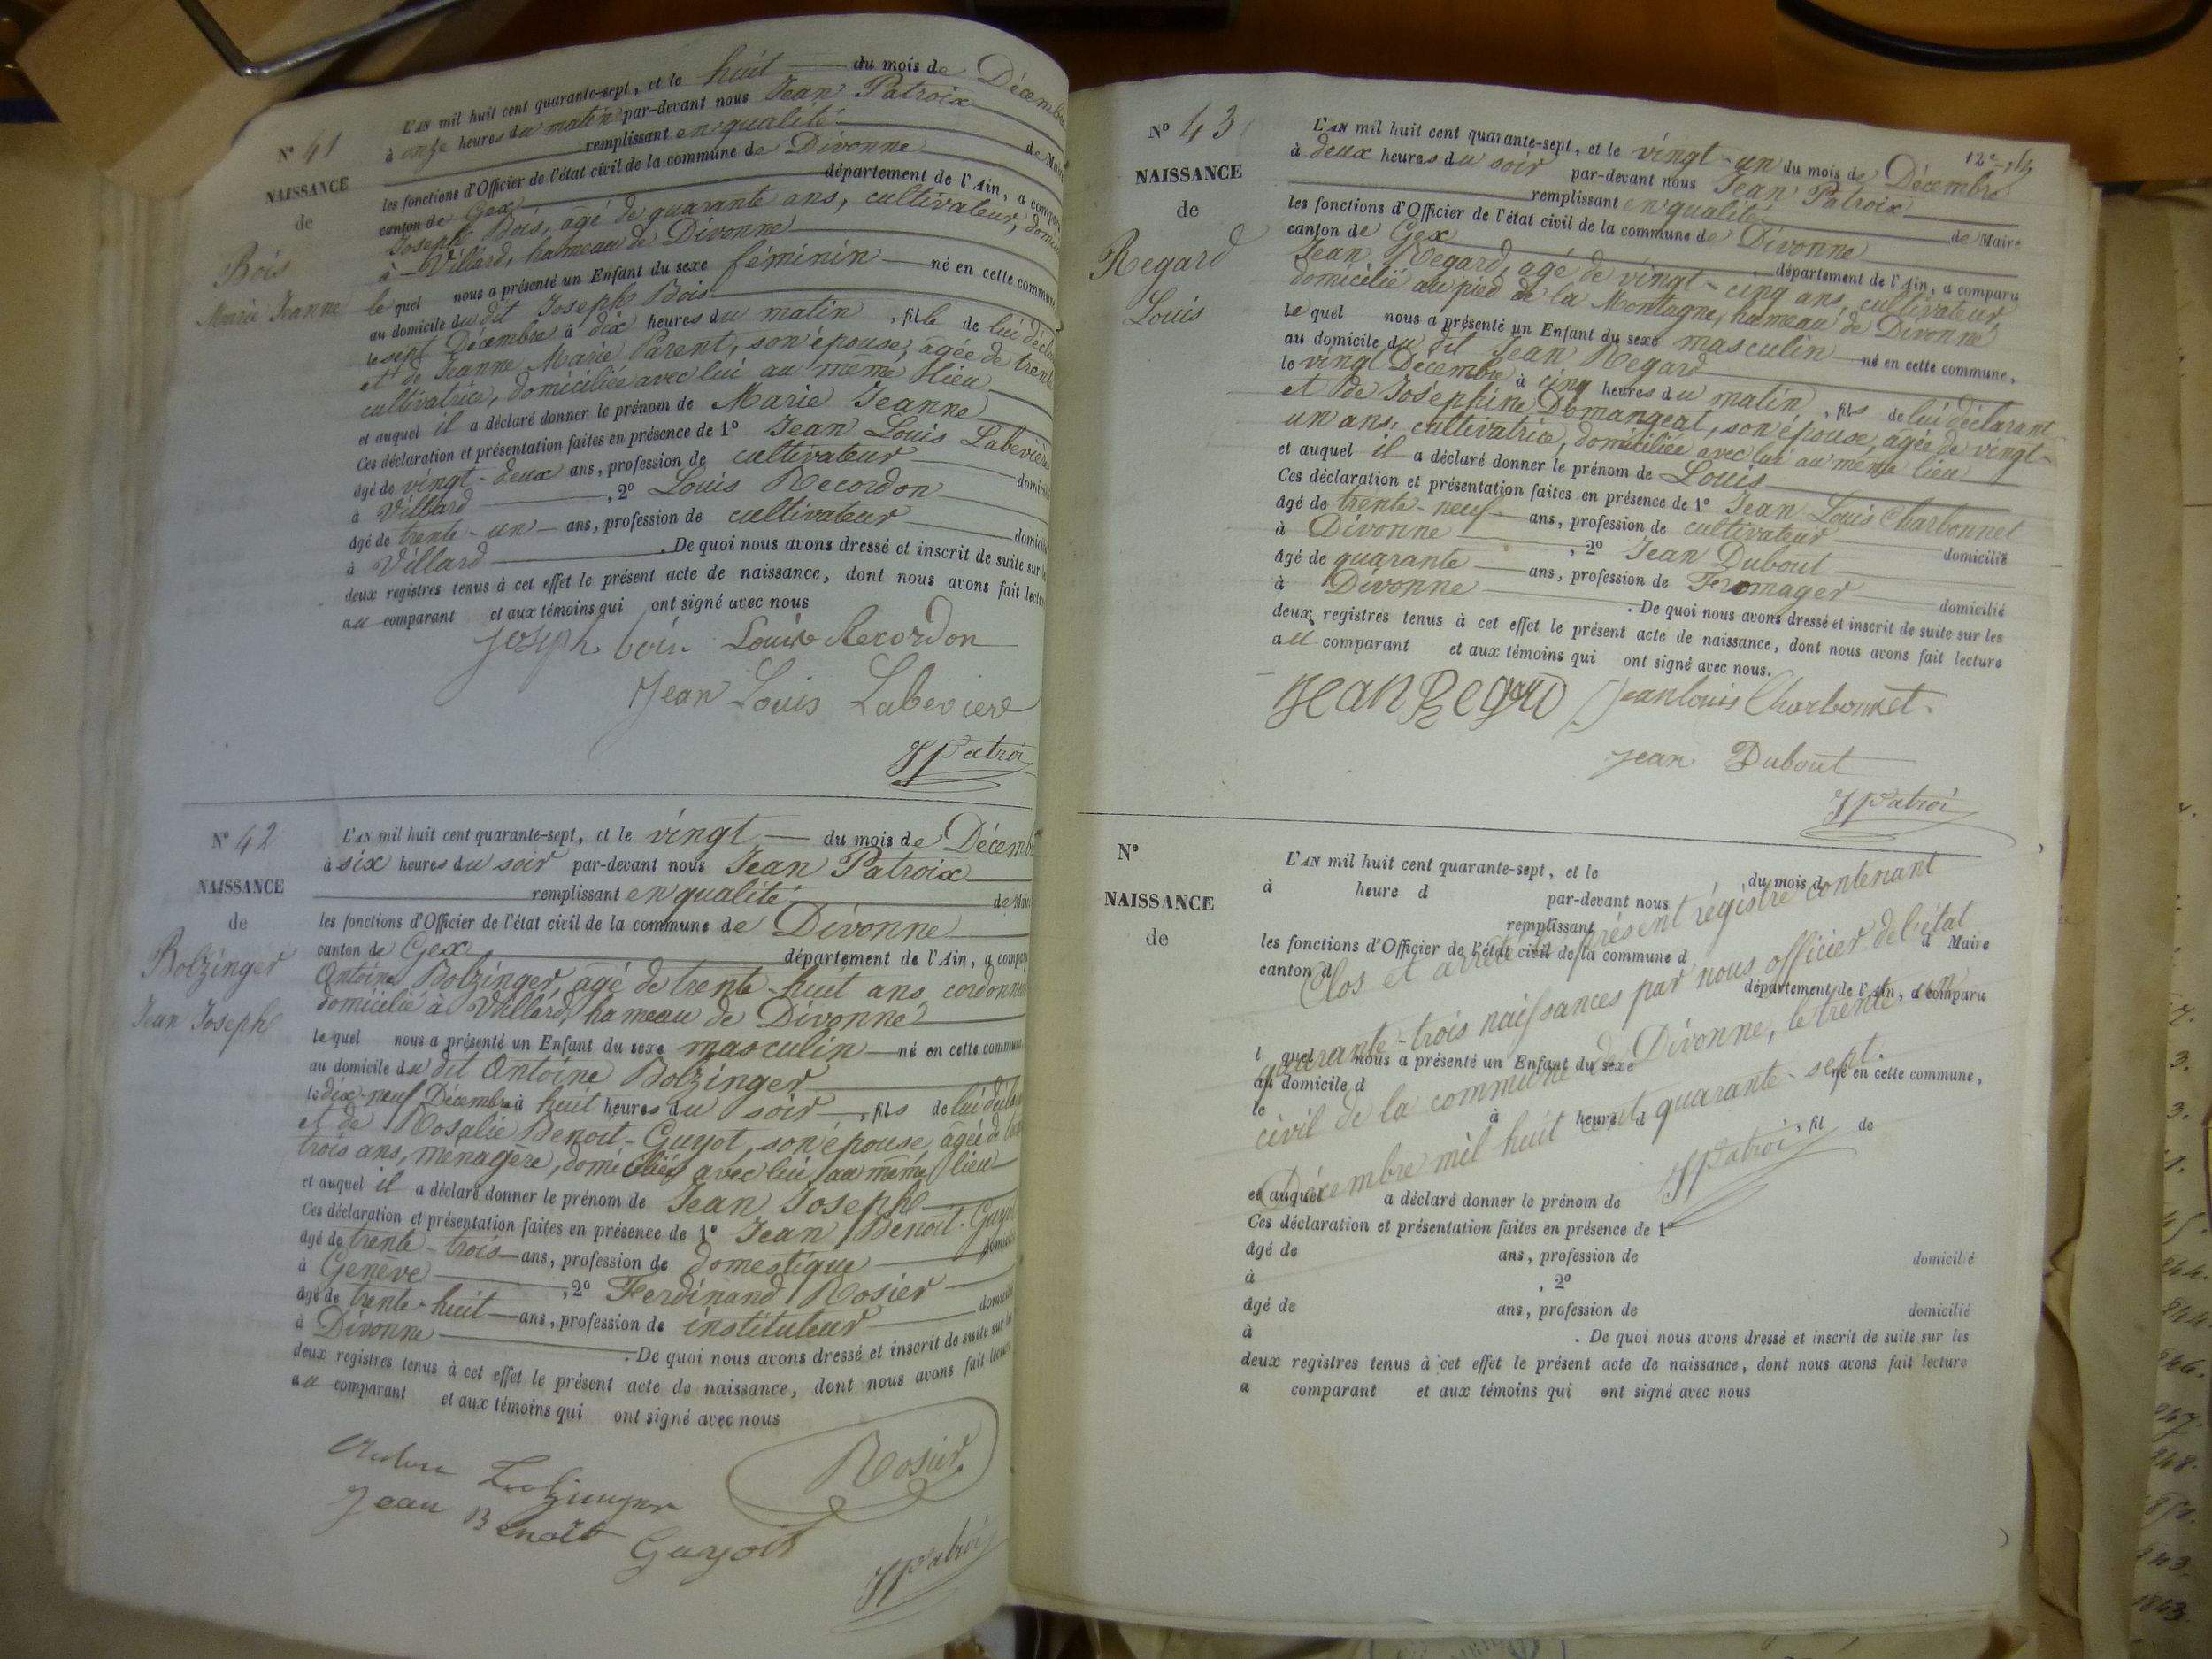 N° 41
NAISSANCE
de
Bois
Marie Jeanne
L'AN mil huit cent quarante-sept, et le huit du mois de Décembre
à onze heures du matin par-devant nous Jean Patroix
remplissant en qualité de Maire
les fonctions d'Officier de l'état civil de la commune de Divonne
canton de Gex département de l'Ain, a comparu
Joseph Bois, âgé de quarante ans, cultivateur,
à Villard, hameau de Divonne
le quel nous a présenté un Enfant du sexe féminin né en cette commune
au domicile du dit Joseph Bois
le sept Décembre à dix heures du matin, fille de lui
et de Jeanne Marie Parent, son épouse, âgée de trente
cultivatrice, domiciliée avec lui au même lieu
et auquel il a déclaré donner le prénom de Marie Jeanne
Ces déclaration et présentation faites en présence de 1° Jean Louis Labeviere
âgé de vingt-deux ans, profession de cultivateur
à Villard, 2° Louis Recordon
âgé de trente-un ans, profession de cultivateur
à Villard. De quoi nous avons dressé et inscrit de suite sur
deux registres tenus à cet effet le présent acte de naissance, dont nous avons fait lecture
au comparant et aux témoins qui ont signé avec nous
Joseph bois Louis Recordon
Jean Louis Labeviere
JPatroi
N° 42
NAISSANCE
de
Bolzinger
Jean Joseph
L'AN mil huit cent quarante-sept, et le vingt du mois de Décembre
à six heures du soir par-devant nous Jean Patroix
remplissant en qualité de Maire
les fonctions d'Officier de l'état civil de la commune de Divonne
canton de Gex département de l'Ain, a comparu
Antoine Bolzinger, âgé de trente-huit ans, cordonnier
domicilié à Villard, hameau de Divonne
le quel nous a présenté un Enfant du sexe masculin né en cette commune
au domicile du dit Antoine Bolzinger
le dix-neuf Décembre à huit heures du soir, fils de lui
et de Rosalie Benoit-Guyot, son épouse, âgée de
trois ans, ménagère, domiciliés avec lui au même lieu
et auquel il a déclaré donner le prénom de Jean Joseph
Ces déclaration et présentation faites en présence de 1° Jean Benoit-Guyot
âgé de trente-trois ans, profession de domestique
à Genève, 2° Ferdinand Rosier
âgé de trente-huit ans, profession de instituteur
à Divonne. De quoi nous avons dressé et inscrit de suite sur
deux registres tenus à cet effet le présent acte de naissance, dont nous avons fait lecture
au comparant et aux témoins qui ont signé avec nous
Rosier
Jean Benoit Guyott
JPatroi
N° 43
NAISSANCE
de
Regard
Louis
L'AN mil huit cent quarante-sept, et le vingt-un du mois de Décembre
à deux heures du soir par-devant nous Jean Patroix
remplissant en qualité de Maire
les fonctions d'Officier de l'état civil de la commune de Divonne
canton de Gex département de l'Ain, a comparu
Jean Regard, âgé de vingt-cinq ans, cultivateur,
domicilié au pied de la Montagne, hameau de Divonne
le quel nous a présenté un Enfant du sexe masculin né en cette commune,
au domicile du dit Jean Regard
le vingt Décembre à cinq heures du matin, fils de lui déclarant
et de Joséphine Domangeat, son épouse, âgée de vingt-
un ans, cultivatrice, domiciliée avec lui au même lieu
et auquel il a déclaré donner le prénom de Louis
Ces déclaration et présentation faites en présence de 1° Jean Louis Charbonnet
âgé de trente-neuf ans, profession de cultivateur domicilié
à Divonne, 2° Jean Dubout
âgé de quarante ans, profession de Fromager domicilié
à Divonne. De quoi nous avons dressé et inscrit de suite sur les
deux registres tenus à cet effet le présent acte de naissance, dont nous avons fait lecture
au comparant et aux témoins qui ont signé avec nous.
Jean Regard Jean louis Charbonnet
Jean Dubout
JPatroi
N°
NAISSANCE
de
L'AN mil huit cent quarante-sept, et le du mois d
à heure d par-devant nous
remplissant d Maire
les fonctions d'Officier de l'état civil de la commune d
canton d département de l'Ain, a comparu
l quel nous a présenté un Enfant du sexe né en cette commune,
au domicile d
le à heure d, fil de
et auquel a déclaré donner le prénom de
Ces déclaration et présentation faites en présence de 1°
âgé de ans, profession de domicilié
à, 2°
âgé de ans, profession de domicilié
à. De quoi nous avons dressé et inscrit de suite sur les
deux registres tenus à cet effet le présent acte de naissance, dont nous avons fait lecture
a comparant et aux témoins qui ont signé avec nous
Clos et arrêté le présent régistre contenant
quarante-trois naissances par nous officier de l'état
civil de la commune de Divonne, le trente-un
Décembre mil huit cent quarante-sept.
JPatroi